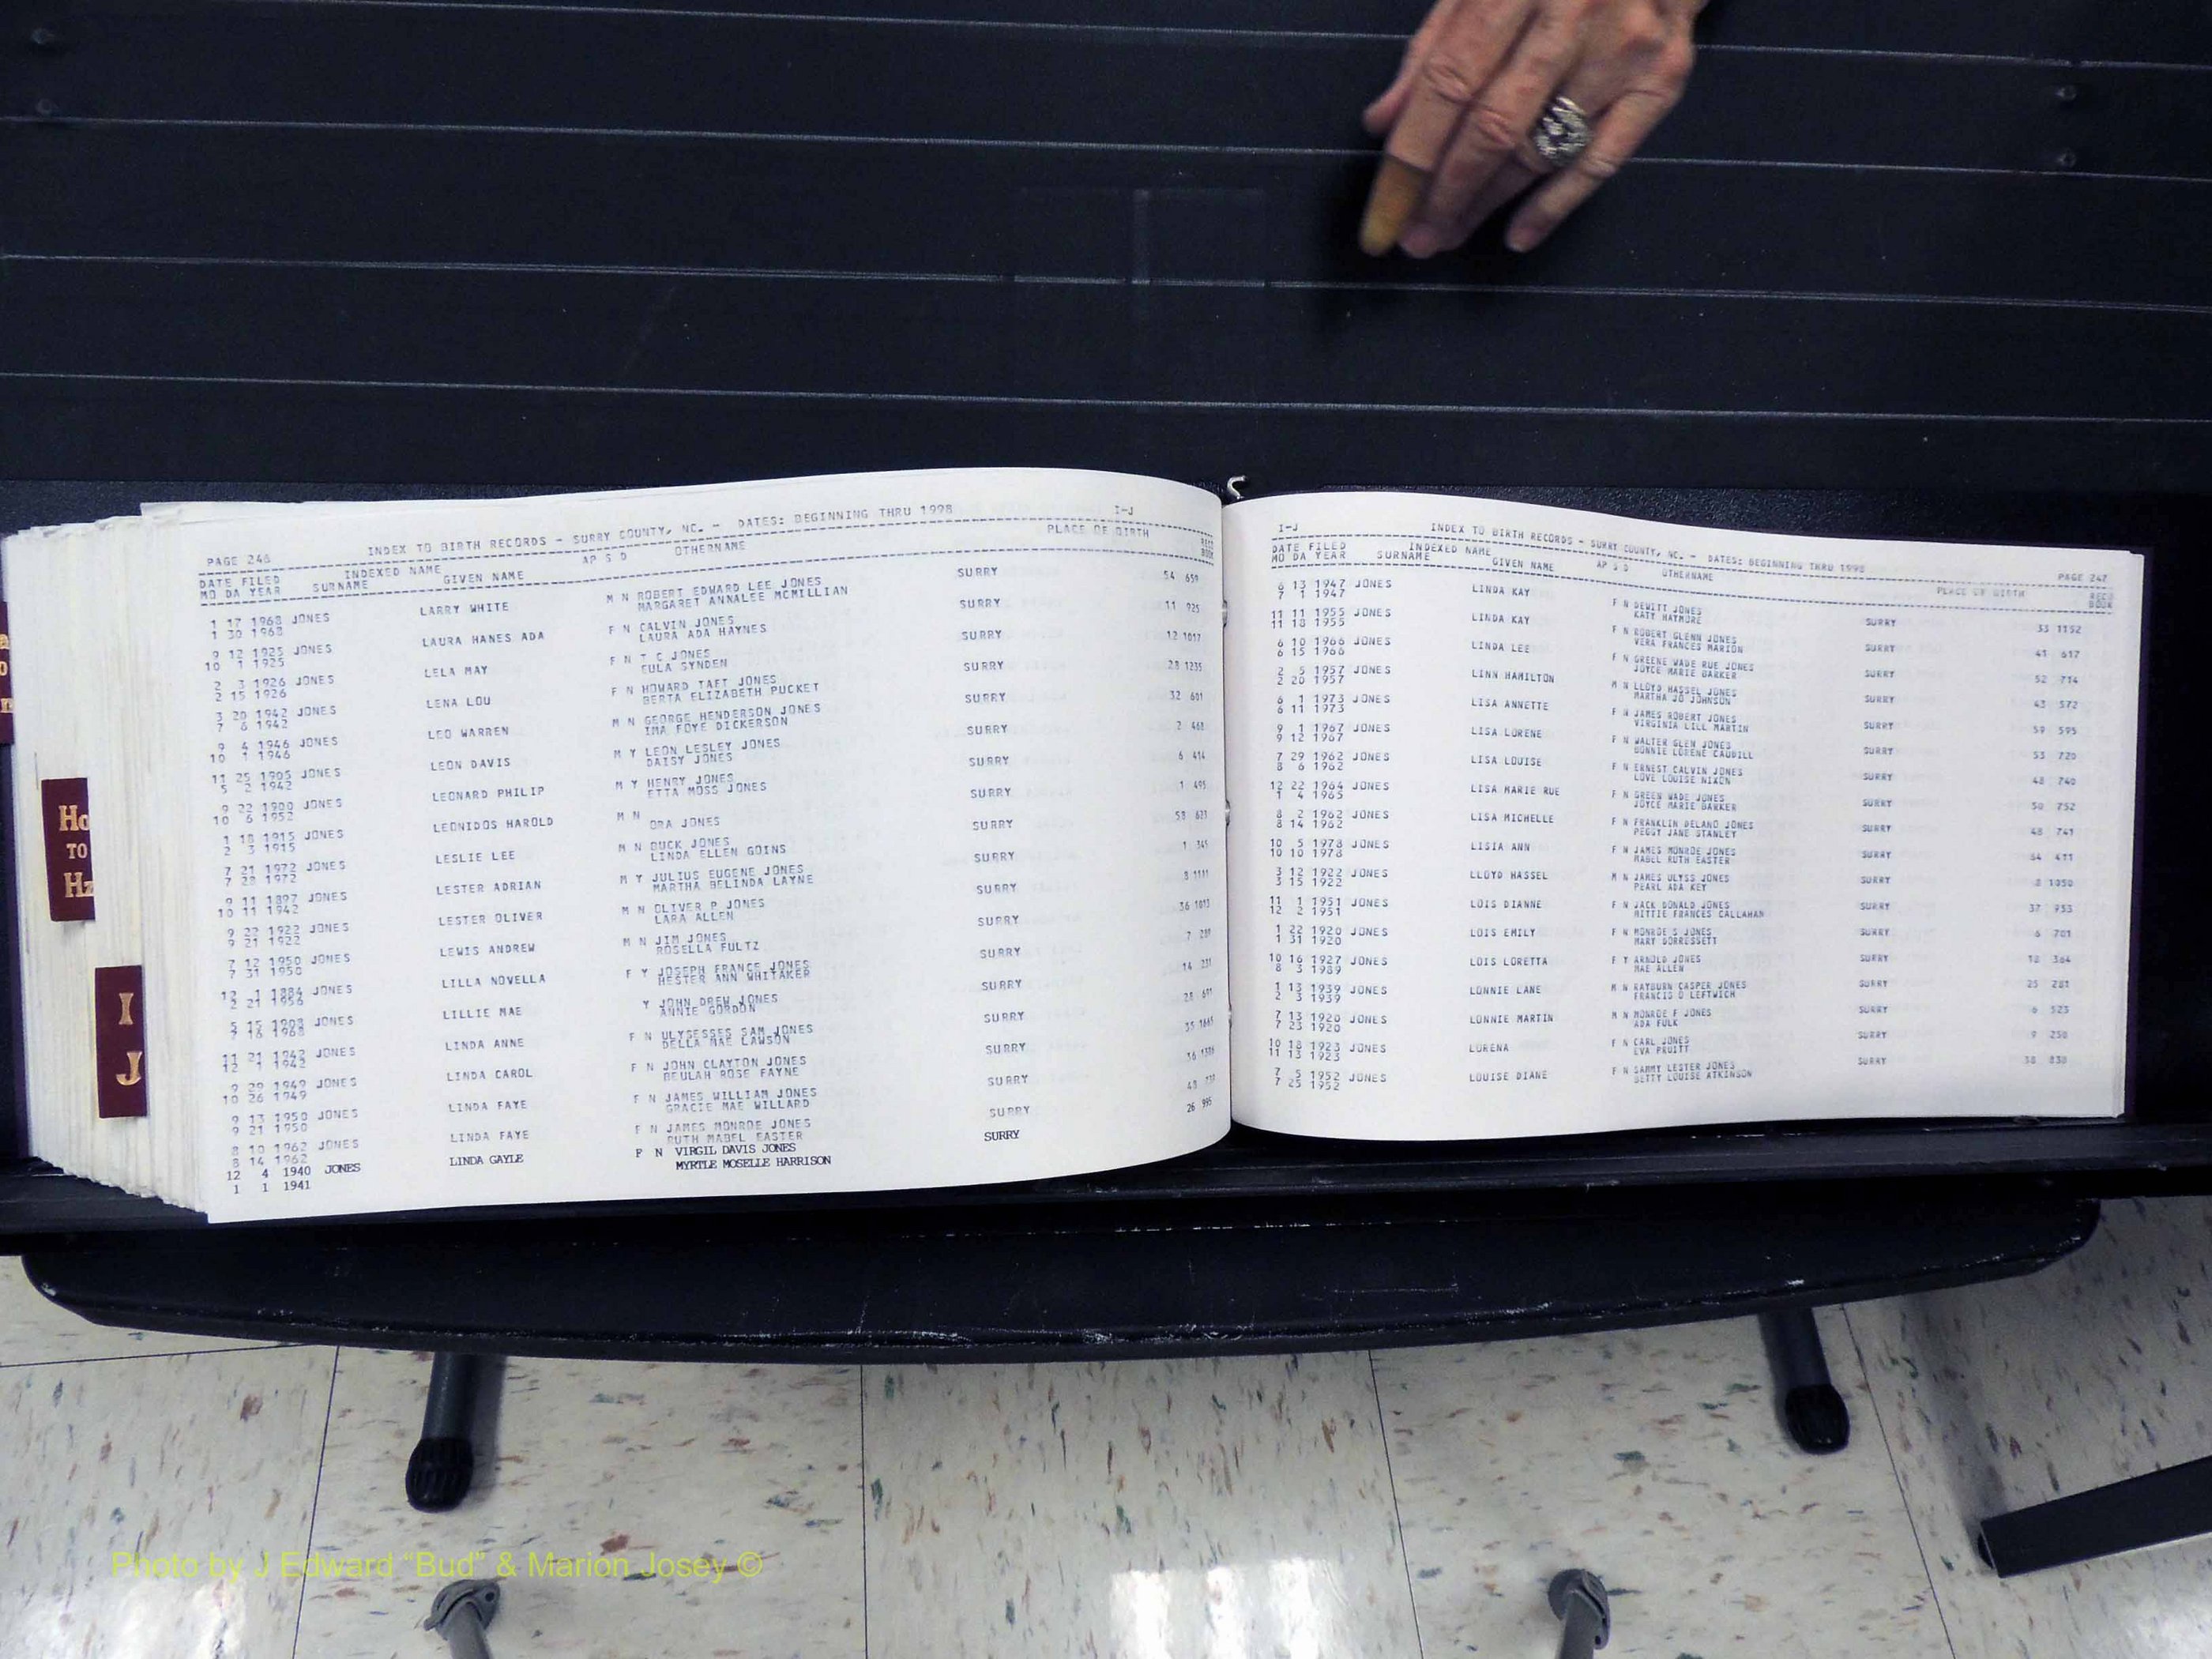 PAGE 246 INDEX TO BIRTH RECORDS - SURRY COUNTY, NC. - DATES: BEGINNING THRU 1998 I-J
DATE FILED INDEXED NAME AP S D OTHERNAME PLACE OF BIRTH
MO DA YEAR SURNAME GIVEN NAME
1 17 1968 JONES LARRY WHITE M N ROBERT EDWARD LEE JONES SURRY 54 659
1 30 1968 MARGARET ANNALEE MCMILLIAN
9 12 1925 JONES LAURA HANES ADA F N CALVIN JONES SURRY 11 925
10 1 1925 LAURA ADA HAYNES
2 3 1926 JONES LELA MAY F N T C JONES SURRY 12 1017
2 15 1926 EULA SYNDEN
3 20 1942 JONES LENA LOU F N HOWARD TAFT JONES SURRY 28 1235
7 6 1942 BERTA ELIZABETH PUCKET
9 4 1946 JONES LEO WARREN M N GEORGE HENDERSON JONES SURRY 32 601
10 1 1946 IMA FOYE DICKERSON
11 25 1905 JONES LEON DAVIS M Y LEON LESLEY JONES SURRY 2 468
5 2 1942 DAISY JONES
9 22 1900 JONES LEONARD PHILIP M Y HENRY JONES SURRY 6 414
10 6 1952 ETTA MOSS JONES
1 18 1915 JONES LEONIDOS HAROLD M N SURRY 1 495
2 3 1915 ORA JONES
7 21 1972 JONES LESLIE LEE M N BUCK JONES SURRY 58 623
7 28 1972 LINDA ELLEN GOINS
9 11 1897 JONES LESTER ADRIAN M Y JULIUS EUGENE JONES SURRY 1 345
10 11 1942 MARTHA BELINDA LAYNE
9 22 1922 JONES LESTER OLIVER M N OLIVER P JONES SURRY 8 1111
9 21 1922 LARA ALLEN
7 12 1950 JONES LEWIS ANDREW M N JIM JONES SURRY 36 1013
7 31 1950 ROSELLA FULTZ
12 1 1884 JONES LILLA NOVELLA F Y JOSEPH FRANCE JONES SURRY 7
2 21 1956 HESTER ANN WHITAKER
5 15 1908 JONES LILLIE MAE Y JOHN DREW JONES SURRY 14 231
7 16 1968 ANNIE GORDON
11 21 1942 JONES LINDA ANNE F N ULYSESSES SAM JONES SURRY 28
12 1 1942 DELLA MAE LAWSON
9 29 1949 JONES LINDA CAROL F N JOHN CLAYTON JONES SURRY 35
10 26 1949 BEULAH ROSE FAYNE
9 13 1950 JONES LINDA FAYE F N JAMES WILLIAM JONES SURRY 36
9 21 1950 GRACIE MAE WILLARD
8 10 1962 JONES LINDA FAYE F N JAMES MONROE JONES SURRY 48
8 14 1962 RUTH MABEL EASTER
12 4 1940 JONES LINDA GAYLE F N VIRGIL DAVIS JONES SURRY 26 995
1 1 1941 MYRTLE MOSELLE HARRISON
I-J INDEX TO BIRTH RECORDS - SURRY COUNTY, NC. - DATES: BEGINNING THRU 1998 PAGE 247
DATE FILED INDEXED NAME AP S D OTHERNAME PLACE OF BIRTH RECD
MO DA YEAR SURNAME GIVEN NAME BOOK
6 13 1947 JONES LINDA KAY F N DEWITT JONES SURRY 33 1152
7 1 1947 KATY HAYMORE
11 11 1955 JONES LINDA KAY F N ROBERT GLENN JONES SURRY 41 617
11 18 1955 VERA FRANCES MARION
6 10 1966 JONES LINDA LEE F N GREENE WADE RUE JONES SURRY 52 714
6 15 1966 JOYCE MARIE BARKER
2 5 1957 JONES LINN HAMILTON M N LLOYD HASSEL JONES SURRY 43 572
2 20 1957 MARTHA JO JOHNSON
6 1 1973 JONES LISA ANNETTE F N JAMES ROBERT JONES SURRY 59 595
6 11 1973 VIRGINIA LILL MARTIN
9 1 1967 JONES LISA LORENE F N WALTER GLEN JONES SURRY 53 720
9 12 1967 BONNIE LORENE CAUDILL
7 29 1962 JONES LISA LOUISE F N ERNEST CALVIN JONES SURRY 48 740
8 6 1962 LOVE LOUISE NIXON
12 22 1964 JONES LISA MARIE RUE F N GREEN WADE JONES SURRY 50 752
1 4 1965 JOYCE MARIE BARKER
8 2 1962 JONES LISA MICHELLE F N FRANKLIN DELANO JONES SURRY 48 741
8 14 1962 PEGGY JANE STANLEY
10 5 1978 JONES LISIA ANN F N JAMES MONROE JONES SURRY 64 411
10 10 1978 MABEL RUTH EASTER
3 12 1922 JONES LLOYD HASSEL M N JAMES ULYSS JONES SURRY 8 1050
3 15 1922 PEARL ADA KEY
11 1 1951 JONES LOIS DIANNE F N JACK DONALD JONES SURRY 37 953
12 2 1951 MITTIE FRANCES CALLAHAN
1 22 1920 JONES LOIS EMILY F N MONROE S JONES SURRY 6 701
1 31 1920 MARY DORRESSETT
10 16 1927 JONES LOIS LORETTA F Y ARNOLD JONES SURRY 18 364
8 3 1989 MAE ALLEN
1 13 1939 JONES LONNIE LANE M N RAYBURN CASPER JONES SURRY 25 281
2 3 1939 FRANCIS D LEFTWICH
7 13 1920 JONES LONNIE MARTIN M N MONROE F JONES SURRY 6 523
7 23 1920 ADA FULK
10 18 1923 JONES LORENA F N CARL JONES SURRY 9 250
11 13 1923 EVA PRUITT
7 5 1952 JONES LOUISE DIANE F N SAMMY LESTER JONES SURRY 38 830
7 25 1952 BETTY LOUISE ATKINSON
Ho
TO
Hz
I
J
Photo by J Edward “Bud” & Marion Josey ©